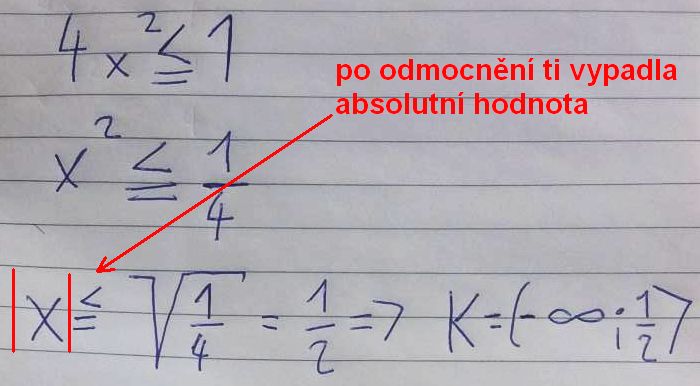 4x² ≤ 1
po odmocnění ti vypadla
absolutní hodnota
x² ≤ 1/4
|x| ≤ √(1/4) = 1/2 => K = (-∞; 1/2⟩